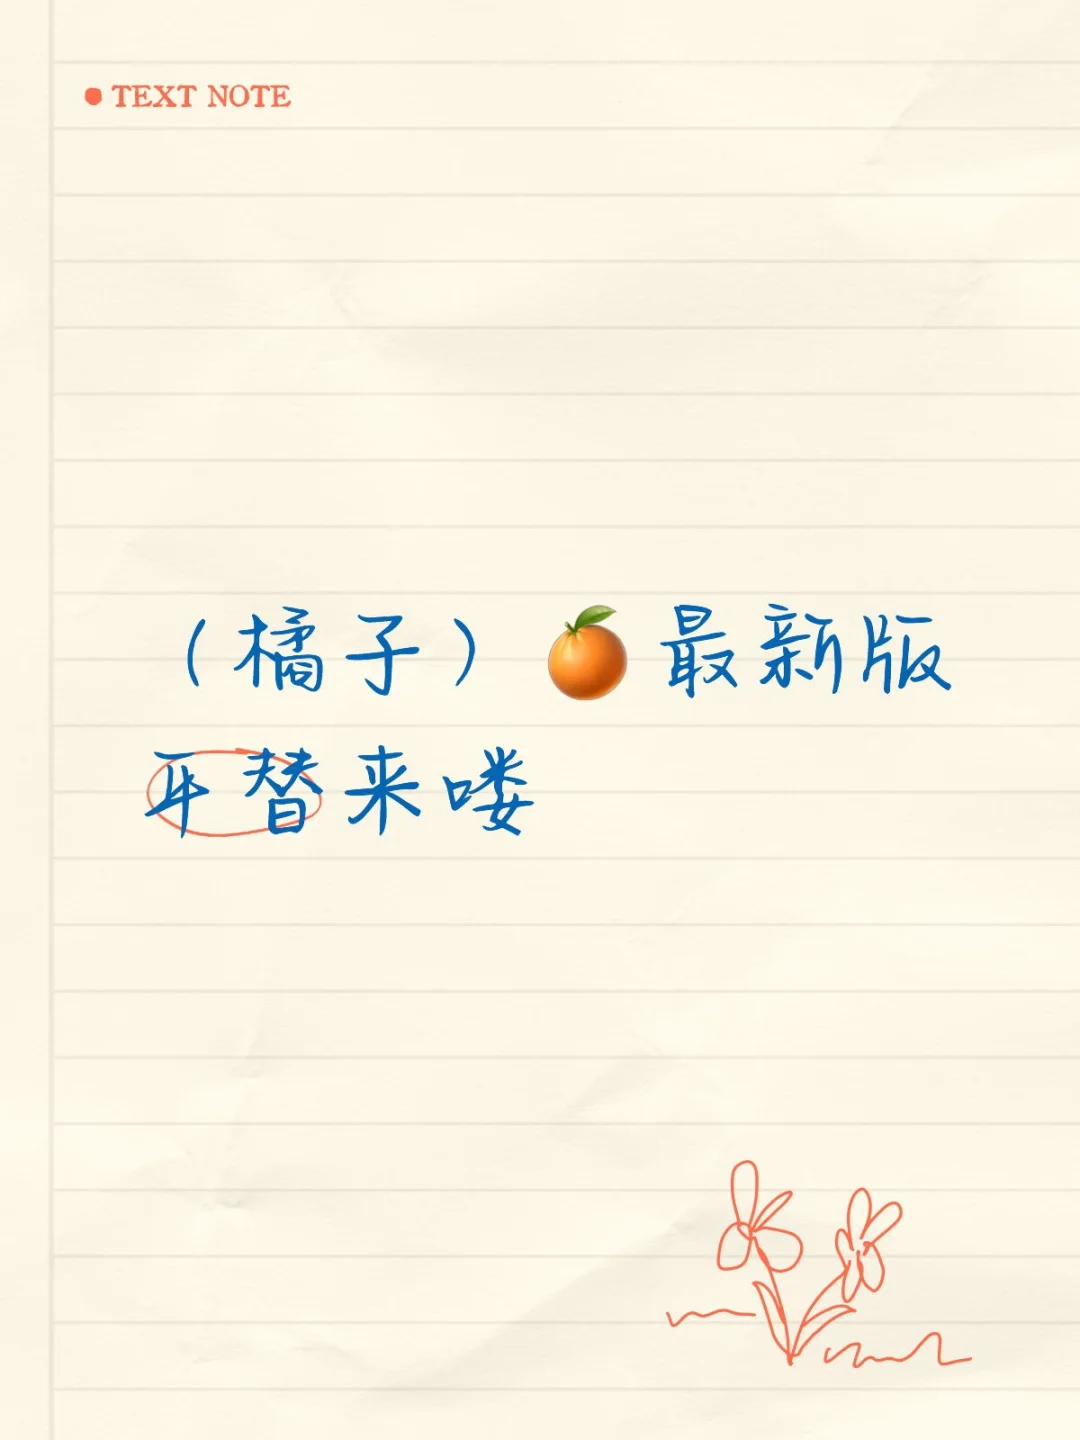 TEXT NOTE
（橘子）🍊最新版
平替来喽